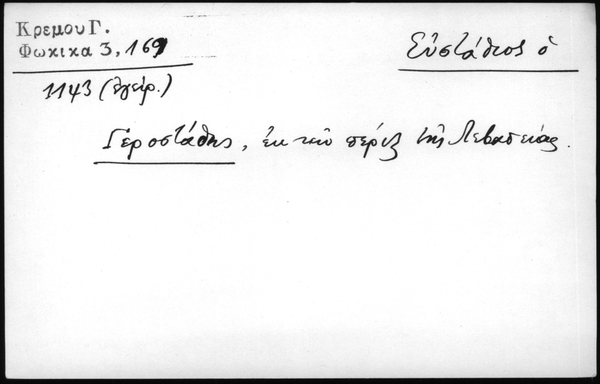 Κρεμου Γ.
Φωκικα 3, 169
Εὐστάθιος ὁ
1143 (ἔγγρ.)
Γεροστάθης, ἐκ τῶν πέριξ τῆς Λεβαδείας.